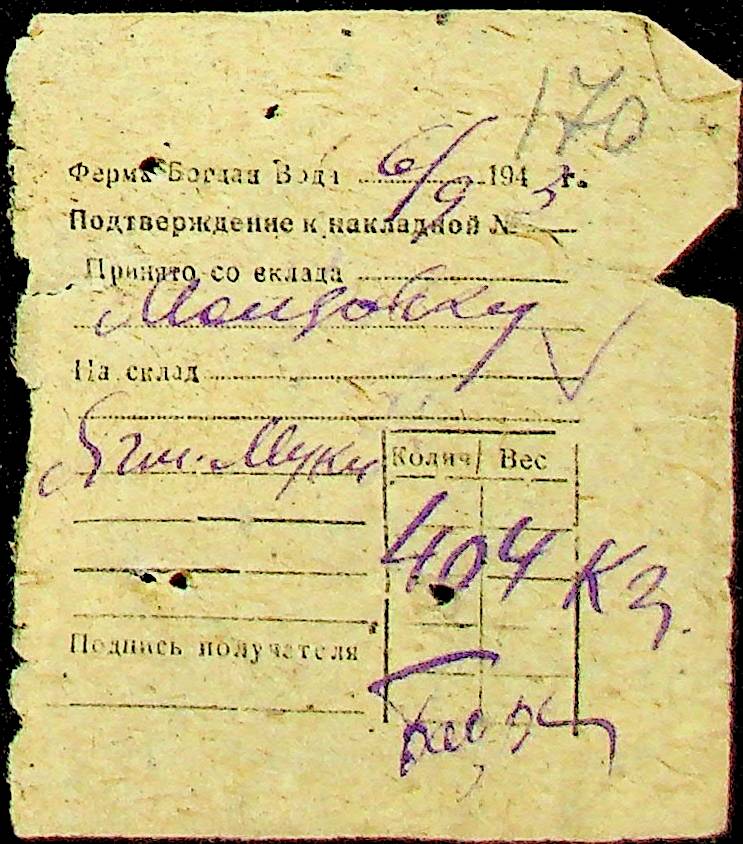 170
Ферма Богдан Вода 6/9 1943 г.
Подтверждение к накладной №
Принято со склада
На склад
Ячм. Муки
Колич. Вес
404 кг.
Подпись получателя